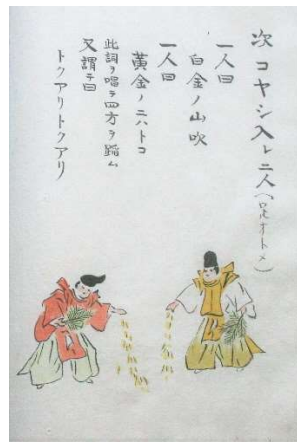 次コヤシ入レ二人(オトメ)
一人曰
白金ノ山吹
一人曰
黄金ノニハトコ
此詞ヲ唱テ四方ヲ蹈ム
又謂テ曰
トクアリトクアリ